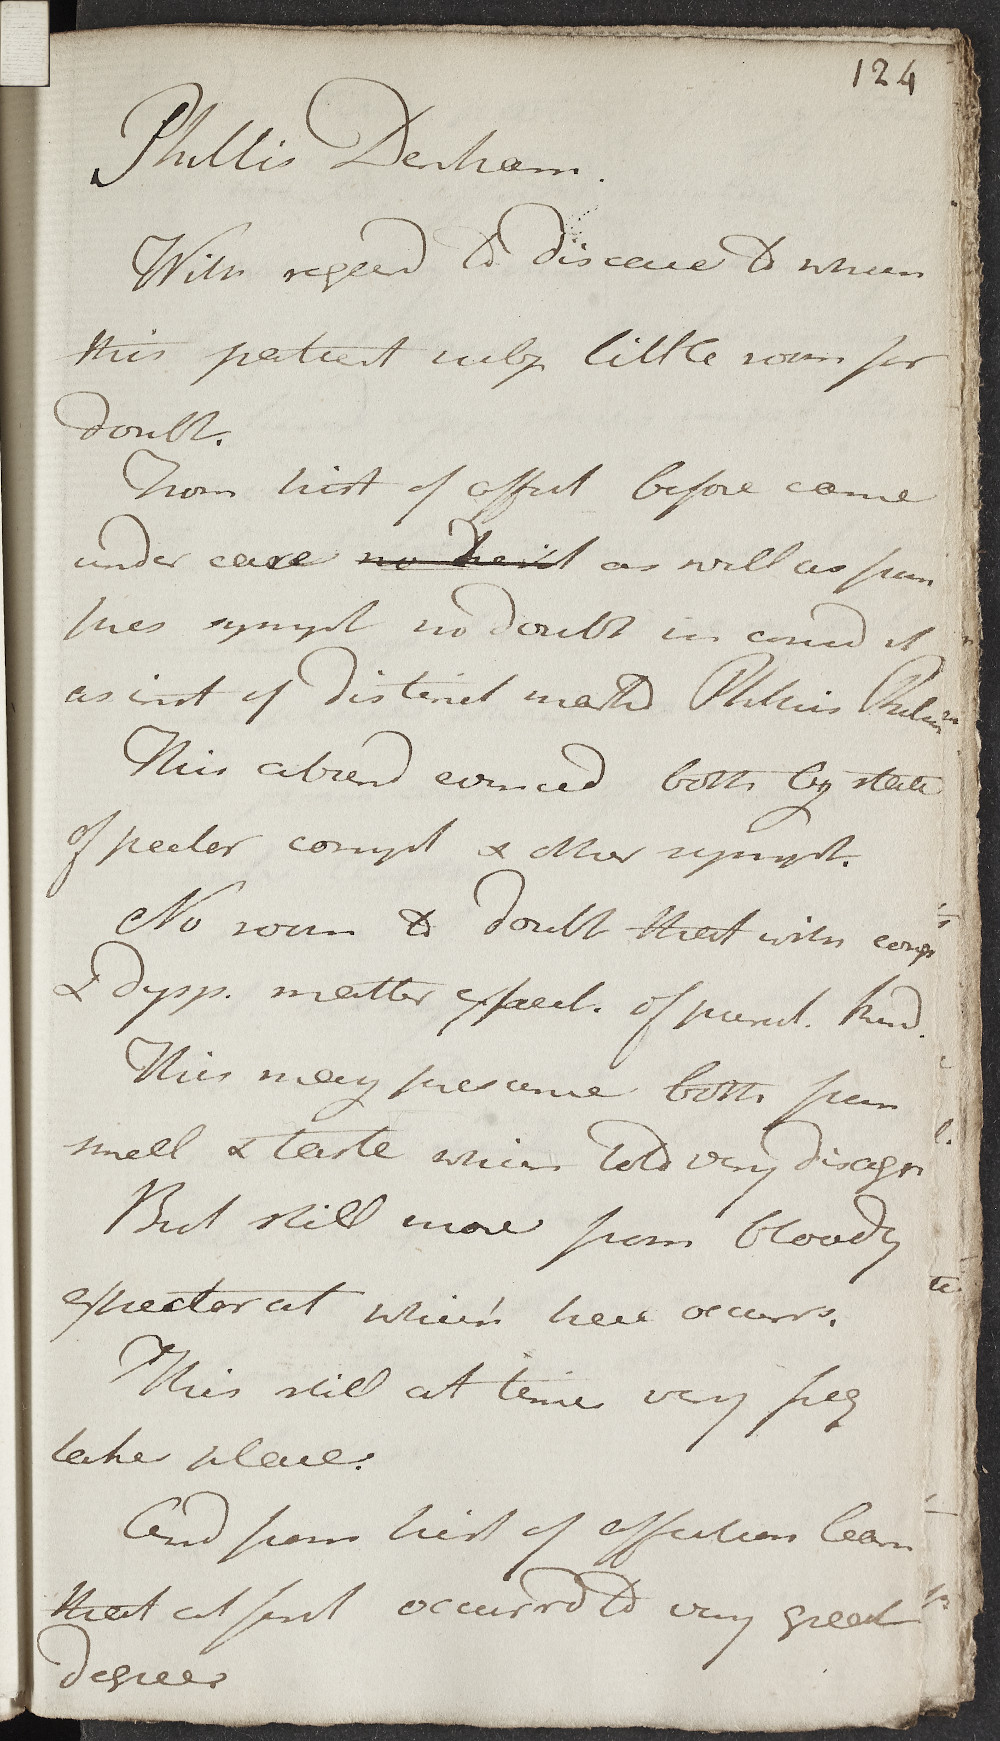 124
Phillis Denham.
With regard to disease to which
this patient subj little room for
doubt.
From hist of affect before came
under care no as well as from
pres sympt no doubt in consid it
as inst of distinct mark'd Phthisis
This abund evinced both by state
of pector compl & other sympt.
No room to doubt that with cough
& Dysp. matter expect. of purul. kind.
This may presume both from
smell & taste which told very disagr
But still more from bloody
expectorat which here occurs.
This still at times very freq
takes place.
And from hist of affection learn
that at first occurred to very great
degree